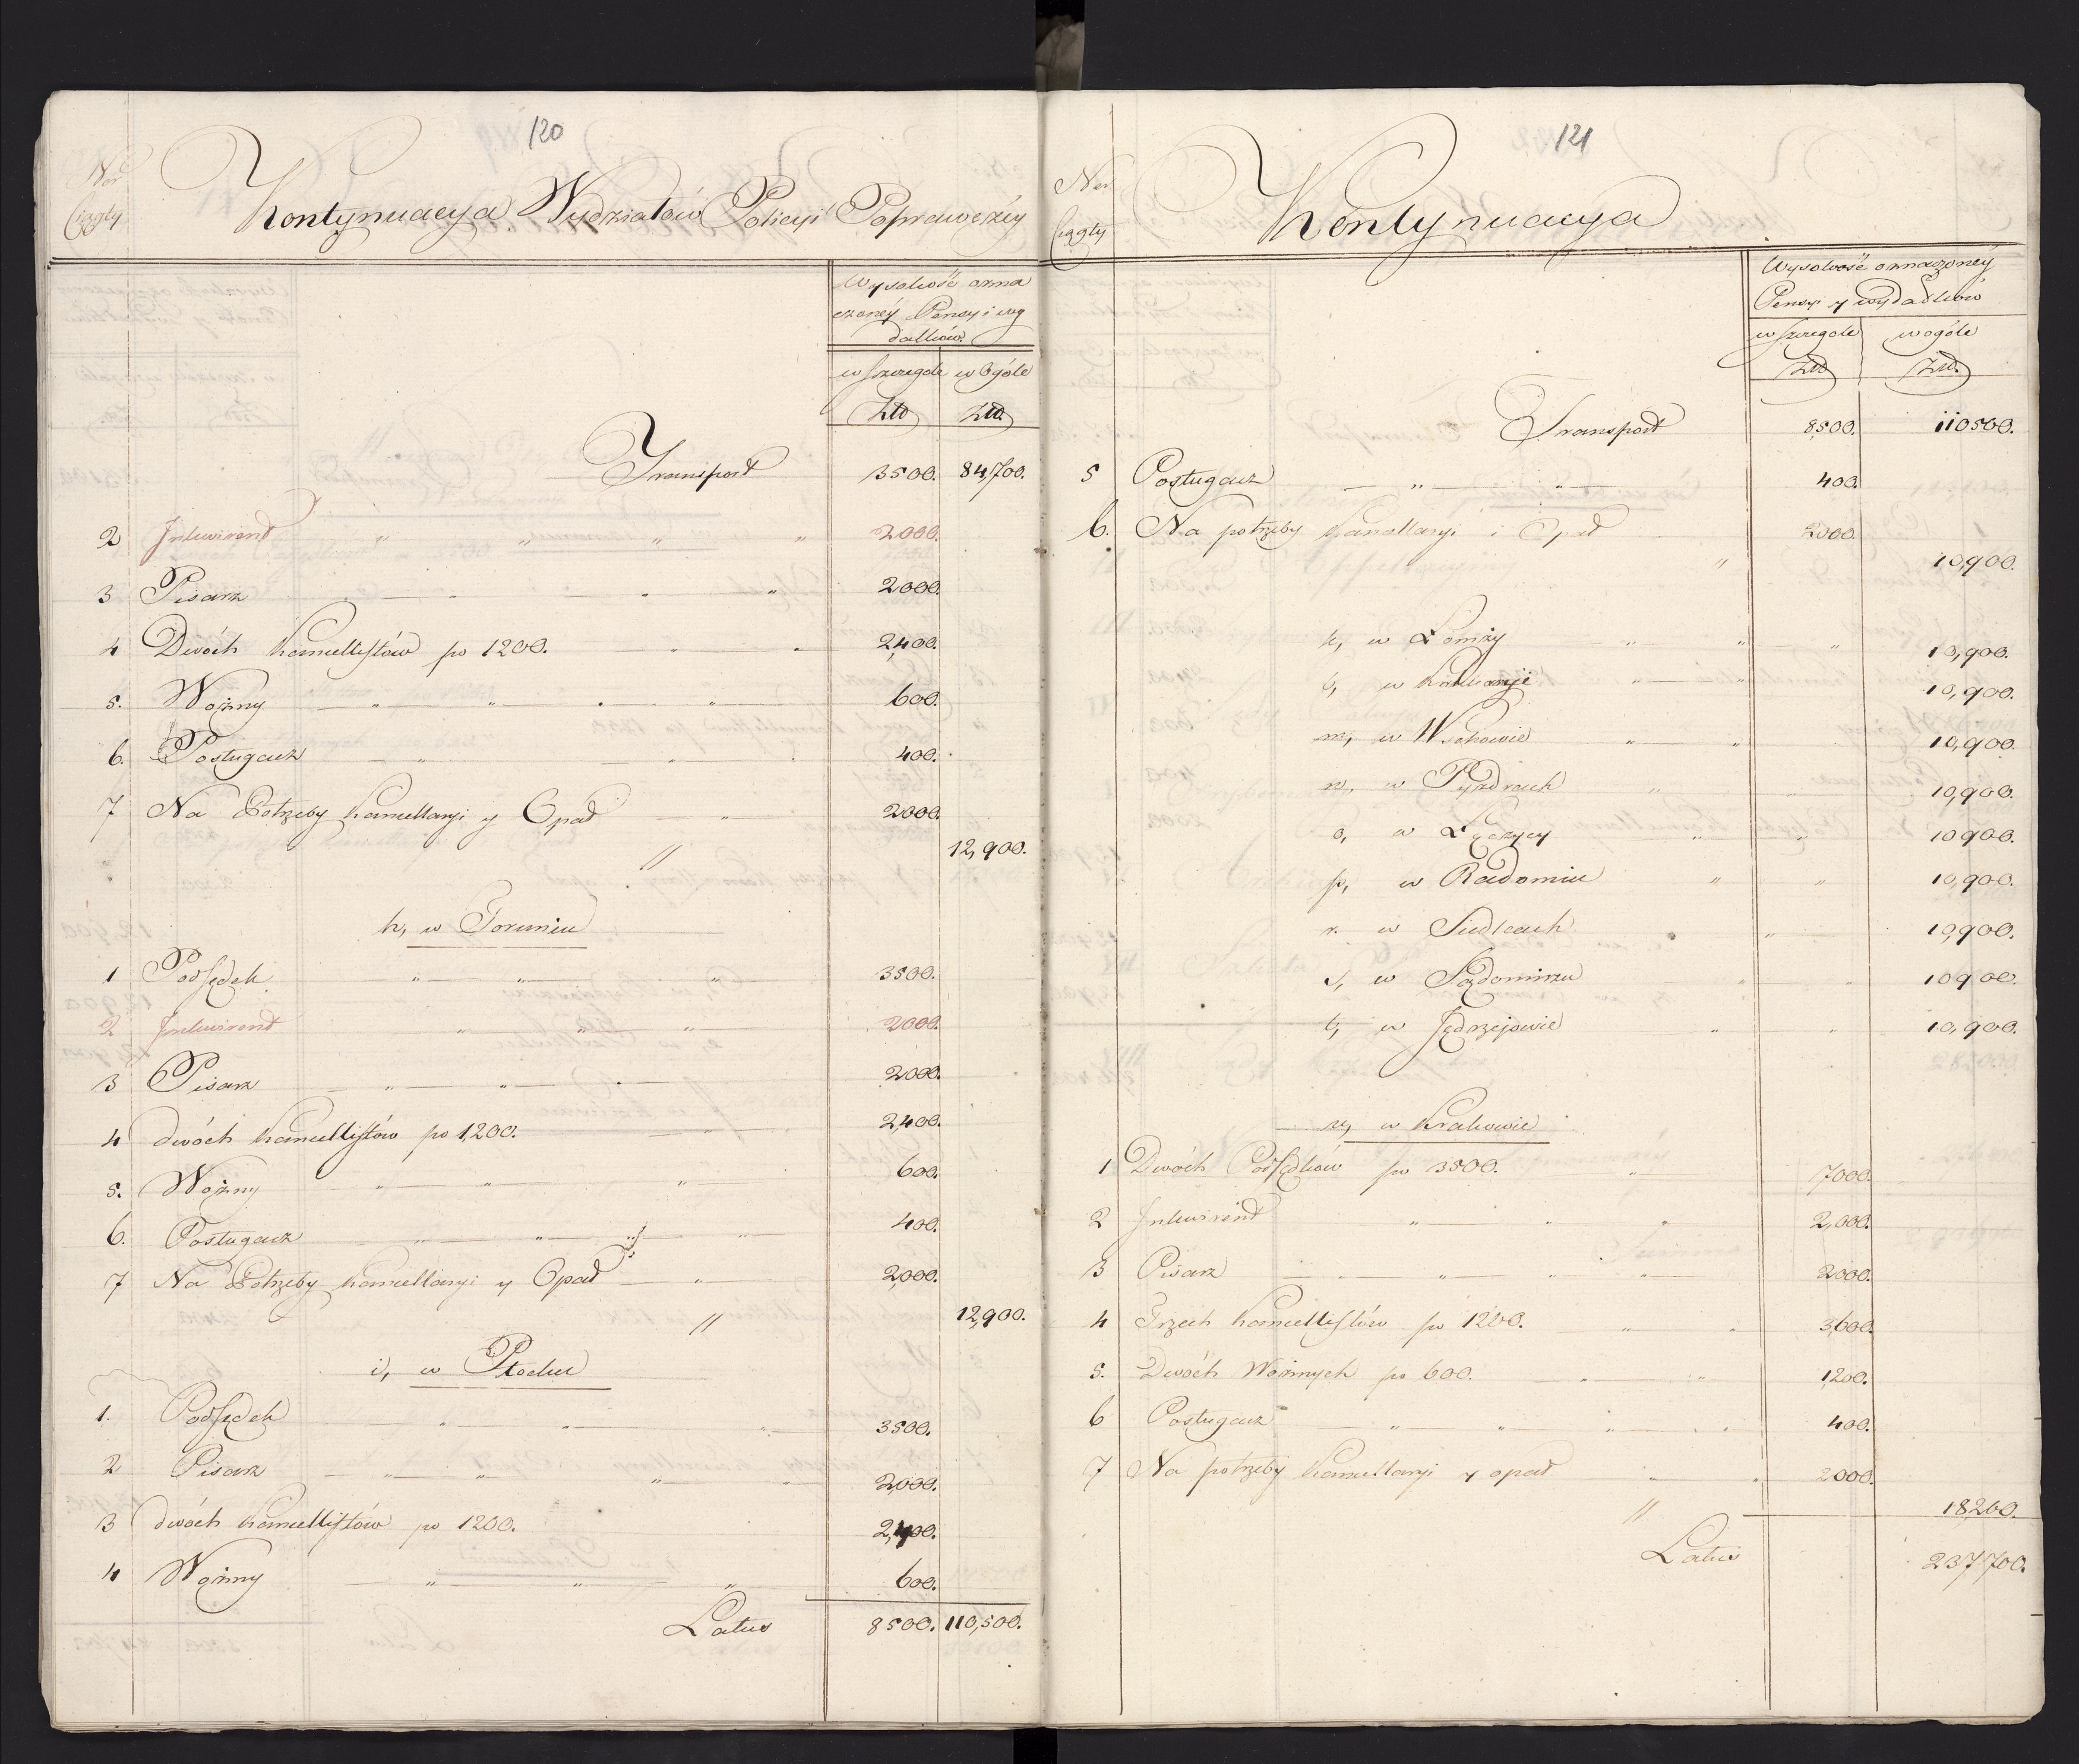 120
Ner
Ciągły
Kontynuacya Wydziałów Policyi Poprawczéy
Wysokość ozna
czonéy Pensyi i wy
datków
w szczegole w Ogóle
Złł Złł
Transport 3500. 84,700.
2 Inkwirent " " " " 2000.
3 Pisarz " " " 2000.
4 Dwóch Kancellistów po 1200. " 2,400.
5. Woźny " " " 600.
6. Posługacz " " 400.
7 Na Potrzeby Kancellaryi y Opał " 2000.
" 12,900.
h, w Toruniu
1 Podsędek " " " 3500.
2 Inkwirent " " " 2000.
3 Pisarz " " 2000.
4 dwóch Kancellistów po 1,200. " 2,400.
5. Woźny " " " 600.
6. Posługacz " " " " 400.
7 Na Potrzeby Kancellaryi y Opał " 2,000.
" 12,900.
i, w Płocku
1. Podsędek " " " 3500.
2 Pisarz " " " " 2,000.
3 dwóch Kancellistów po 1200. 2,400.
4 Woźny " " " 600.
Latus 8500. 110,500.
121
Ner
Ciągły
Kontynuacya
Wysokość oznaczonéy
Pensyi y wydatków
w szczegole w ogóle
Złł Złł.
Transport 8,500. 110500.
5 Posługacz " " 400.
6. Na potrzeby Kancellaryi i Opał 2000.
" 10,900.
k, w Łomży " " " 10,900.
l, w Kalwaryi " " 10,900.
m, w Wschowie " " 10,900.
n, w Pyzdrach " 10,900.
o, w Łęczycy " " 10900.
p, w Radomiu " " 10,900.
r. w Siedlcach " 10,900.
s, w Sądomirzu " " 10900.
t, w Jędrzejowie " " 10,900.
u, w Krakowie
1 Dwóch Podsędków po 3500. " 7000.
2 Inkwirent " " " 2,000.
3 Pisarz " " " " 2000.
4 Trzech Kancellistów po 1200. " " 3,600.
5. Dwóch Woźnych po 600. " " 1,200.
6 Posługacz " " " " 400.
7 Na potrzeby Kancellaryi y opał " " 2000.
" 18,200.
Latus 237,700.